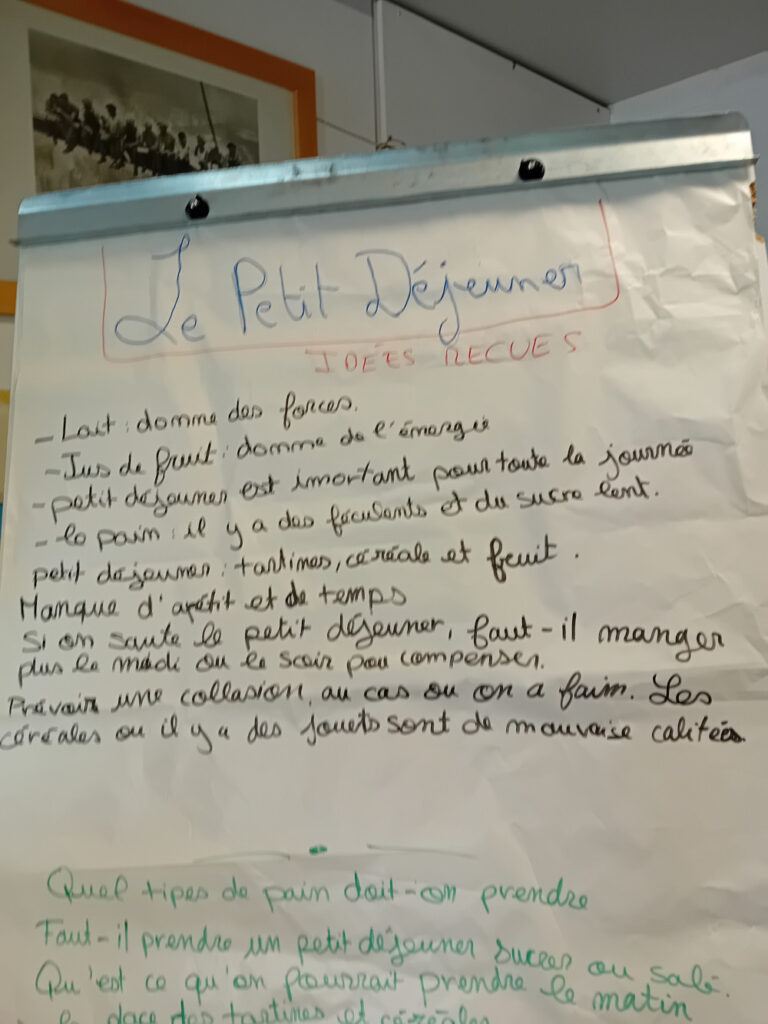 Le Petit Déjeuner
IDÉES RECUES
- Lait : domme des forces.
- Jus de fruit : domme de l'émergie
- petit déjeuner est imortant pour toute la journée
- le pain : il y a des féculents et du sucre lent.
petit déjeuner : tartimes, céréale et fruit.
Manque d'apétit et de temps
Si on saute le petit déjeuner, faut-il manger
plus le midi ou le soir pou compenser.
Prévoir une collasion, au cas ou on a faim. Les
céréales ou il y a des jouets sont de mauvaise calitées
Quel tipes de pain doit-on prendre
Faut-il prendre un petit déjeuner sucrer ou salé.
Qu'est ce qu'on pourrait prendre le matin
place des tartines et céréales